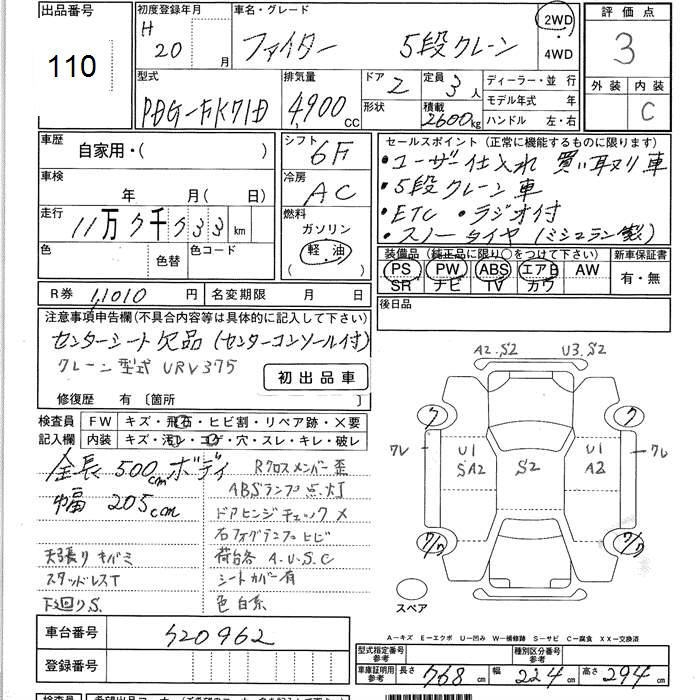 出品番号
110
初度登録年月
H 20 月
車名・グレード
ファイター 5段クレーン
2WD
・
4WD
評価点
3
外装 内装
C
型式
PDG-FK71D
排気量
4,900cc
ドア 2
形状
定員 3人
積載
2600kg
ディーラー・並 行
モデル年式 年
ハンドル 左・右
車歴
自家用・( )
シフト
6F
セールスポイント (正常に機能するものに限ります)
・ユーザー仕入れ 買い取り車
・5段クレーン車
・ETC ・ラジオ付
・スノータイヤ (ミシュラン製)
車検
年 月( 日)
冷房
AC
走行
11万7千533km
燃料
ガソリン
軽・油
色 色替 色コード
装備品 (純正品に限り○をつけて下さい)
PS PW ABS エアB AW
SR ナビ TV カワ
新車保証書
有・無
R券 11,010 円
名変期限 月 日
後日品
注意事項申告欄(不具合内容等は具体的に記入して下さい)
センターシート欠品 (センターコンソール付)
クレーン型式 URV375
初出品車
修復歴 有 〔箇所 〕
検査員 記入欄
FW キズ・飛石・ヒビ割・リペア跡・×要
内装 キズ・汚レ・コゲ・穴・スレ・キレ・破レ
全長 500cm ボディ
幅 205cm
天張りキバミ
スタッドレスT
下廻りS
Rクロスメンバー歪
ABSランプ点灯
ドアヒンジチェックメ
右フォグランプヒビ
荷台各 A.U.S.C
シートカバー有
色 白系
A2.S2 U3.S2
ク ク
ワレ U1 SA2 S2 U1 A2 ワレ
ク/ワ ク/ワ
スペア
A-キズ E-エクボ U-凹み W-補修跡 S-サビ C-腐食 XX-交換済
車台番号 520962
登録番号
型式指定番号
参考
種別区分番号
参考
車庫証明用
参考
長さ 768cm 幅 224cm 高さ 294cm
検査員